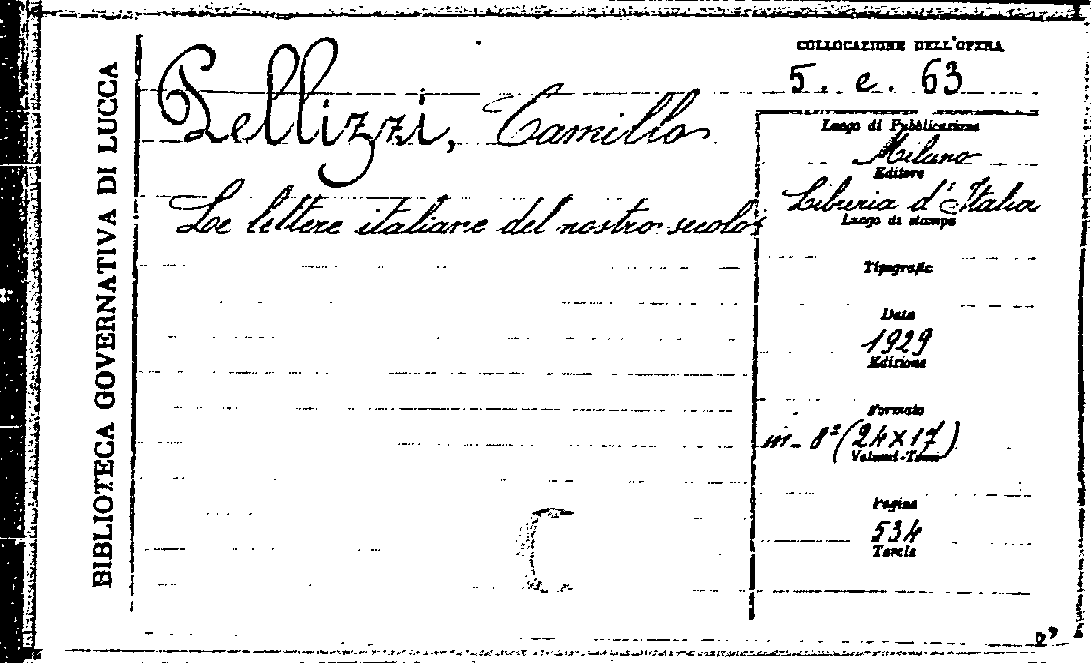 BIBLIOTECA GOVERNATIVA DI LUCCA
COLLOCAZIONE DELL'OPERA
5. e. 63
Pellizzi, Camillo
Le lettere italiane del nostro secolo
Luogo di Pubblicazione
Milano
Editore
Libreria d'Italia
Luogo di stampa
Tipografia
Data
1929
Edizione
Formato
in-8° (24x17)
Volumi-Tomi
Pagine
534
Tavole
C